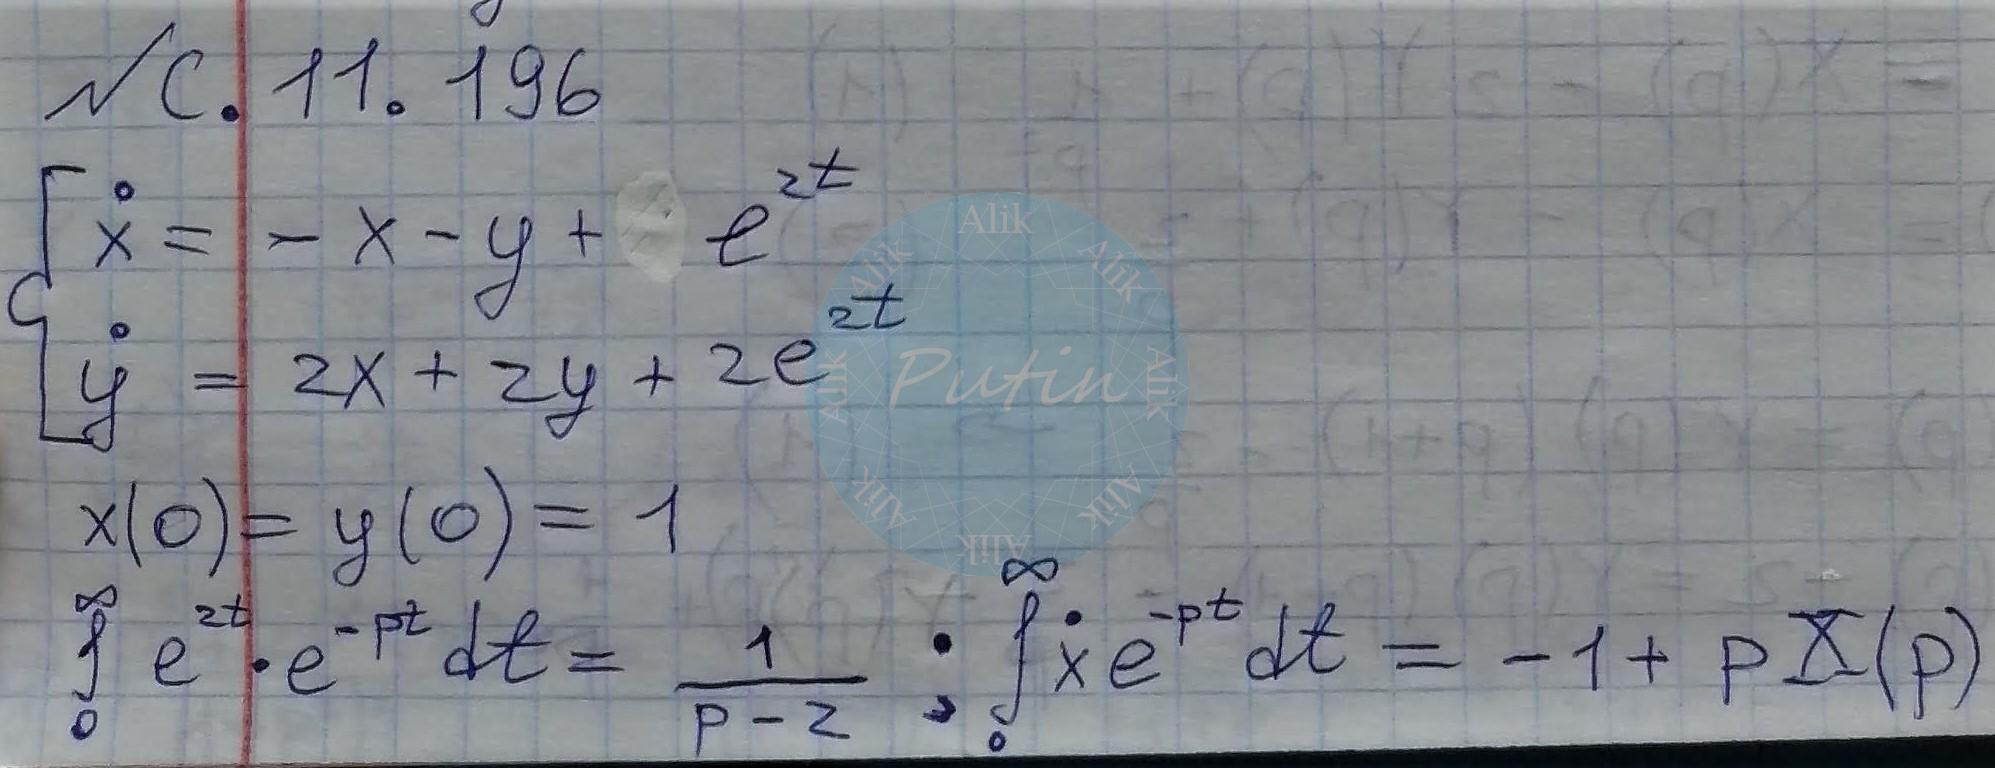 № C. 11. 196
ẋ = - x - y + e^{2t}
ẏ = 2x + 2y + 2e^{2t}
x(0) = y(0) = 1
∫_0^∞ e^{2t} · e^{-pt} dt = 1/(p-2) ; ∫_0^∞ ẋ e^{-pt} dt = -1 + p X(p)
Alik Alik Alik Alik Alik Alik Alik Alik
Putin